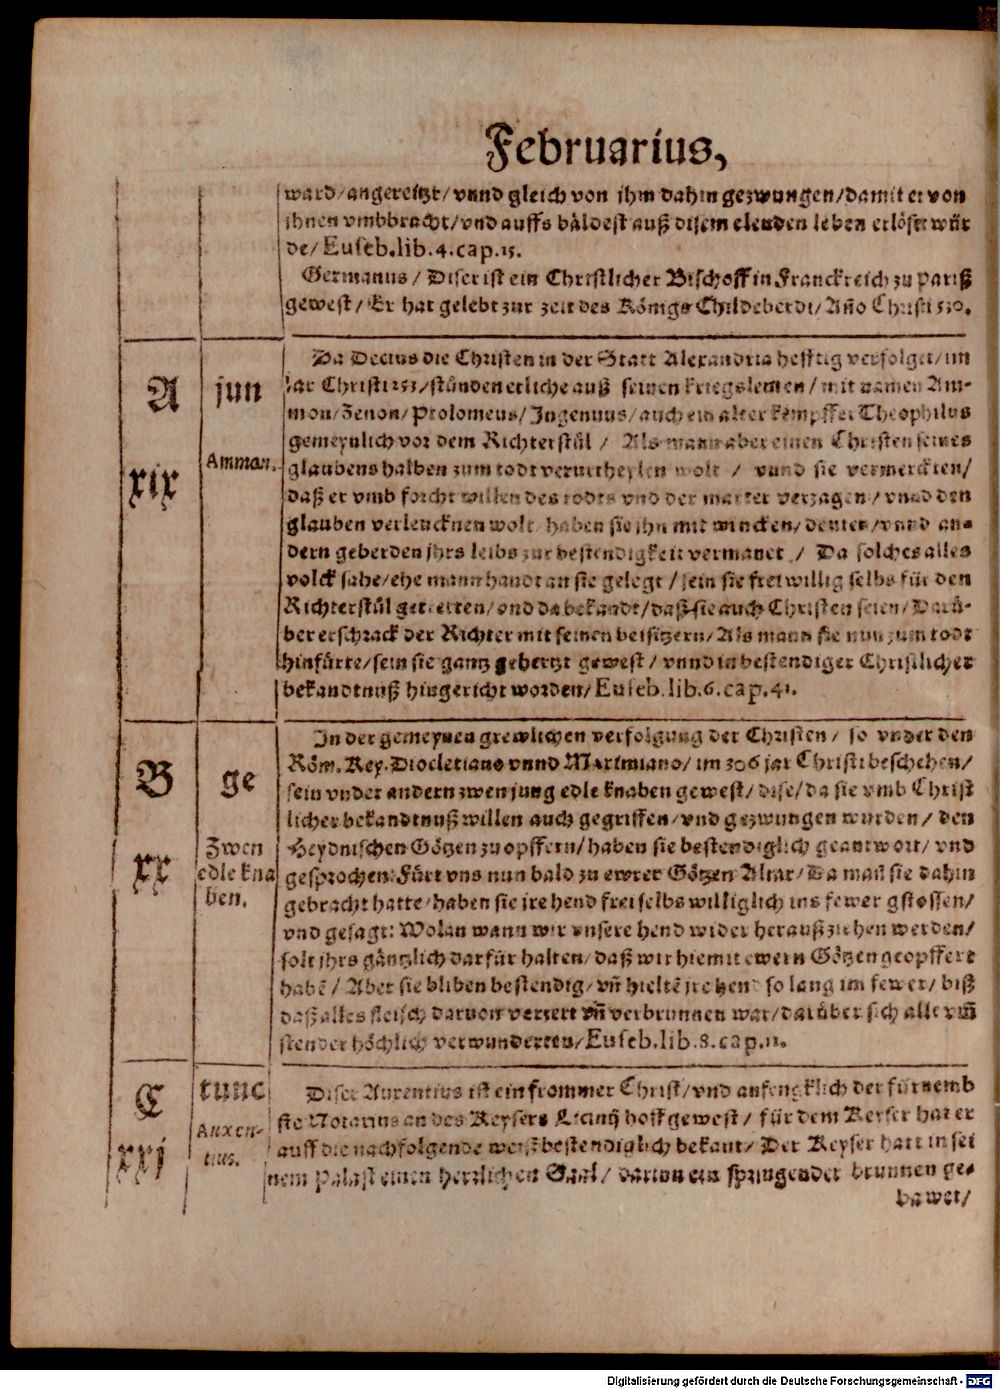 Februarius,
ward/angereitzt/vnnd gleich von ihm dahin gezwungen/damit er von
ihnen vmbbracht/vnd auffs bäldest auß disem elenden leben erlöset wür
de/ Euseb.lib.4.cap.15.
Germanus/ Diser ist ein Christlicher Bischoff in Franckreich zu Pariß
gewest/ Er hat gelebt zur zeit des Königs Childeberdi/ Año Christi 530.
A
jun
xix
Ammon.
Da Decius die Christen in der Statt Alexandria hefftig verfolget/im
jar Christi 253/stünden etliche auß seinen kriegsleuten/mit namen Am-
mon/Zenon/Ptolomeus/Ingenuus/auch ein alter kempffer Theophilus
gemeynlich vor dem Richterstůl/ Als mann aber einen Christen seines
glaubens halben zum todt verurtheylen wolt/ vnnd sie vermerckten/
daß er vmb forcht willen des todts vnd der marter verzagen/vnnd den
glauben verleucknen wolt/haben sie jhn mit wincken/deuten/vnnd an-
dern geberden jhrs leibs zur bestendigkeit vermanet/ Da solches alles
volck sahe/ehe mann handt an sie gelegt/sein sie freiwillig selbs für den
Richterstůl getretten/vnd da bekandt/daß sie auch Christen seien/Darü-
ber erschrack der Richter mit seinen beisitzern/Als mann sie nun zum todt
hinfürte/sein sie gantz gehertzt gewest/vnnd in bestendiger Christlicher
bekandtnuß hingericht worden/Euseb.lib.6.cap.41.
B
ge
xx
Zwen
edle kna
ben.
In der gemeynen grewlichen verfolgung der Christen/ so vnder den
Röm. Key. Diocletiano vnnd Maximiano/im 306 jar Christi beschehen/
sein vnder andern zwen jung edle knaben gewest/dise/da sie vmb Christ
licher bekandtnuß willen auch gegriffen/vnd gezwungen wurden/den
Heydnischen Götzen zu opffern/haben sie bestendiglich geantwort/vnd
gesprochen: Fürt vns nun bald zu ewrer Götzen Altar/Da mañ sie dahin
gebracht hatte/haben sie jre hend frei selbs williglich ins fewer gstossen/
vnd gesagt: Wolan wann wir vnsere hend wider herauß ziehen werden/
solt jhrs gäntzlich darfür halten/daß wir hiemit ewern Götzen geopffert
habẽ/Aber sie bliben bestendig/vñ hieltẽ jre hend so lang im fewer/biß
daß alles fleisch daruon verzert vñ verbrunnen war/darüber sich alle vm̃
stender höchlich verwunderten/Euseb.lib.8.cap.12.
C
tunc
xxj
Auxen-
tius.
Diser Auxentius ist ein frommer Christ/vnd anfengklich der fürnemb
ste Notarius an des Keysers Licinij hoff gewest/ für dem Keyser hat er
auff die nachfolgende weiß bestendiglich bekant/Der Keyser hatt in sei
nem Palast einen herrlichen Saal/ darinn ein springender brunnen ge-
bawet/
Digitalisierung gefördert durch die Deutsche Forschungsgemeinschaft - DFG